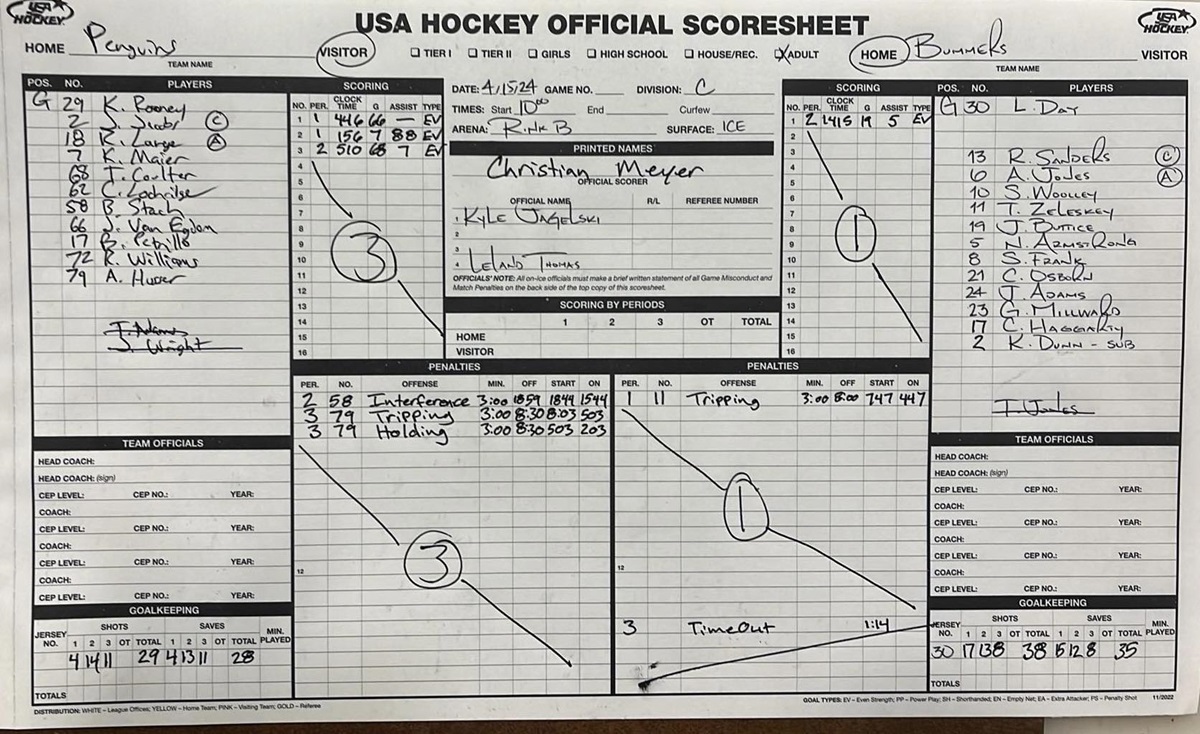 USA HOCKEY
USA HOCKEY OFFICIAL SCORESHEET
USA HOCKEY
HOME Penguins VISITOR ☐ TIER I ☐ TIER II ☐ GIRLS ☐ HIGH SCHOOL ☐ HOUSE/REC. ☒ ADULT HOME Bummers VISITOR
TEAM NAME
TEAM NAME
POS. NO. PLAYERS
G 29 K. Rooney
2 (C)
18 R. Zarge (A)
7 K. Maier
68 T. Coulter
62 C.
58 B. Stach
66 J. Van Egdom
17 B. Petrillo
72 R. Williams
79 A. Huber
T. Adams
J. Wright
SCORING
NO. PER. CLOCK TIME G ASSIST TYPE
1 1 446 66 — EV
2 1 156 7 88 EV
3 2 510 68 7 EV
4
5
6
7
8
9
10
11
12
13
14
15
16
3
DATE: 4/15/24 GAME NO. DIVISION: C
TIMES: Start 10:00 End Curfew
ARENA: Rink B SURFACE: ICE
PRINTED NAMES
Christian Meyer
OFFICIAL SCORER
OFFICIAL NAME R/L REFEREE NUMBER
1 Kyle Jagelski
2
3
4 Leland Thomas
OFFICIALS' NOTE: All on-ice officials must make a brief written statement of all Game Misconduct and
Match Penalties on the back side of the top copy of this scoresheet.
SCORING BY PERIODS
1 2 3 OT TOTAL
HOME
VISITOR
SCORING
NO. PER. CLOCK TIME G ASSIST TYPE
1 2 1415 19 5 EV
2
3
4
5
6
7
8
9
10
11
12
13
14
15
16
1
POS. NO. PLAYERS
G 30 L. Day
13 R. Sanders (C)
6 A. Jones (A)
10 S. Woolley
11 T. Zeleskey
19 J. Buttice
5 N. Armstrong
8 S. Frank
21 C. Osborn
24 J. Adams
23 G. Millward
17 C. Haggarty
2 K. Dunn - SUB
T. Jones
PENALTIES
PER. NO. OFFENSE MIN. OFF START ON
2 58 Interference 3:00 1859 1844 1544
3 79 Tripping 3:00 8:30 8:03 503
3 79 Holding 3:00 8:30 503 203
12
3
PENALTIES
PER. NO. OFFENSE MIN. OFF START ON
1 11 Tripping 3:00 8:00 747 447
12
1
3 TimeOut 1:14
TEAM OFFICIALS
HEAD COACH:
HEAD COACH: (sign)
CEP LEVEL: CEP NO.: YEAR:
COACH:
CEP LEVEL: CEP NO.: YEAR:
COACH:
CEP LEVEL: CEP NO.: YEAR:
COACH:
CEP LEVEL: CEP NO.: YEAR:
GOALKEEPING
SHOTS SAVES
JERSEY NO. 1 2 3 OT TOTAL 1 2 3 OT TOTAL MIN. PLAYED
4 14 11 29 4 13 11 28
TOTALS
TEAM OFFICIALS
HEAD COACH:
HEAD COACH: (sign)
CEP LEVEL: CEP NO.: YEAR:
COACH:
CEP LEVEL: CEP NO.: YEAR:
COACH:
CEP LEVEL: CEP NO.: YEAR:
COACH:
CEP LEVEL: CEP NO.: YEAR:
GOALKEEPING
SHOTS SAVES
JERSEY NO. 1 2 3 OT TOTAL 1 2 3 OT TOTAL MIN. PLAYED
30 17 13 8 38 15 12 8 35
TOTALS
DISTRIBUTION: WHITE – League Offices; YELLOW – Home Team; PINK – Visiting Team; GOLD – Referee
GOAL TYPES: EV – Even Strength; PP – Power Play; SH – Shorthanded; EN – Empty Net; EA – Extra Attacker; PS – Penalty Shot 11/2022